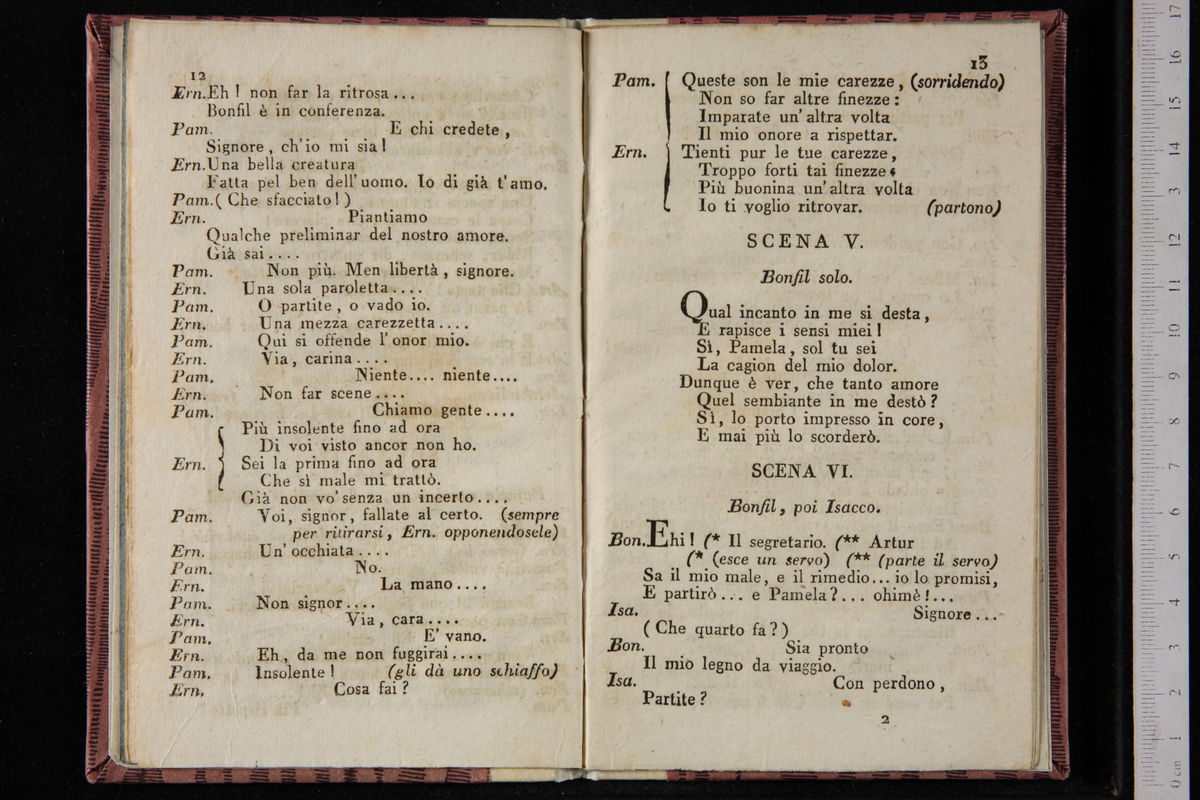 12
Ern. Eh ! non far la ritrosa...
Bonfil è in conferenza.
Pam. E chi credete ,
Signore , ch'io mi sia !
Ern. Una bella creatura
Fatta pel ben dell'uomo. Io di già t'amo.
Pam. ( Che sfacciato ! )
Ern. Piantiamo
Qualche preliminar del nostro amore.
Già sai....
Pam. Non più. Men libertà , signore.
Ern. Una sola paroletta....
Pam. O partite , o vado io.
Ern. Una mezza carezzetta....
Pam. Qui si offende l'onor mio.
Ern. Via , carina....
Pam. Niente.... niente....
Ern. Non far scene....
Pam. Chiamo gente....
Più insolente fino ad ora
Di voi visto ancor non ho.
Ern. Sei la prima fino ad ora
Che sì male mi trattò.
Già non vo' senza un incerto....
Pam. Voi, signor, fallate al certo. (sempre
per ritirarsi, Ern. opponendosele)
Ern. Un' occhiata....
Pam. No.
Ern. La mano....
Pam. Non signor....
Ern. Via , cara....
Pam. E' vano.
Ern. Eh, da me non fuggirai....
Pam. Insolente ! (gli dà uno schiaffo)
Ern. Cosa fai ?
13
Pam. Queste son le mie carezze , (sorridendo)
Non so far altre finezze :
Imparate un' altra volta
Il mio onore a rispettar.
Ern. Tienti pur le tue carezze ,
Troppo forti tai finezze
Più buonina un' altra volta
Io ti voglio ritrovar. (partono)
SCENA V.
Bonfil solo.
Qual incanto in me si desta ,
E rapisce i sensi miei !
Sì, Pamela , sol tu sei
La cagion del mio dolor.
Dunque è ver, che tanto amore
Quel sembiante in me destò ?
Sì, lo porto impresso in core ,
E mai più lo scorderò.
SCENA VI.
Bonfil, poi Isacco.
Bon. Ehi ! (* Il segretario. (** Artur
(* (esce un servo) (** (parte il servo)
Sa il mio male, e il rimedio... io lo promisi,
E partirò... e Pamela ?... ohimè !...
Isa. Signore...
( Che quarto fa ? )
Bon. Sia pronto
Il mio legno da viaggio.
Isa. Con perdono ,
Partite ?
2
0 cm 1 2 3 4 5 6 7 8 9 10 11 12 13 14 15 16 17